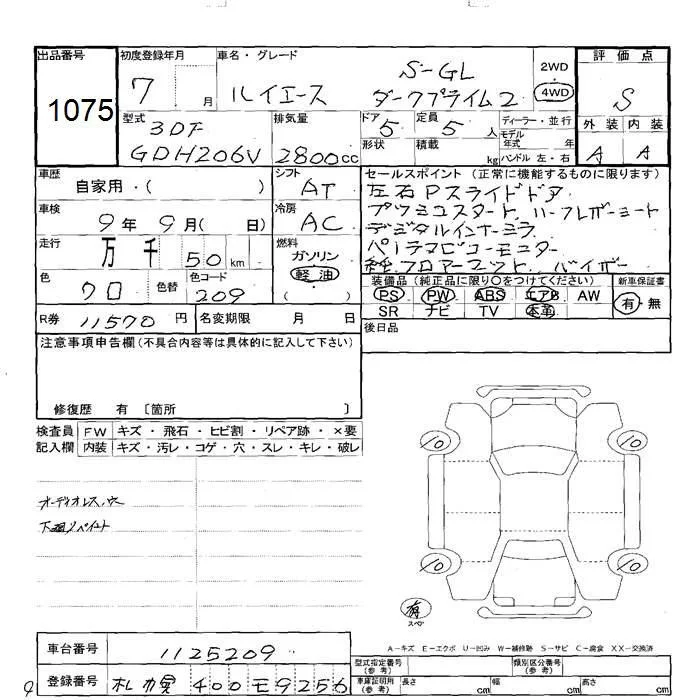 出品番号 初度登録年月 車名・グレード 評価点
1075 7 月 ハイエース S-GL ダークプライム2 2WD 4WD S
型式 排気量 ドア 定員 ディーラー・並行 外装 内装
3DF 5 5人 モデル年式 年 A A
GDH206V 2800cc 形状 積載 kg ハンドル 左・右
車歴 自家用・( ) シフト AT セールスポイント(正常に機能するものに限ります)
左右Pスライドドア
車検 9年9月( 日) 冷房 AC プッシュスタート ハーフレザーシート
デジタルインナーミラー
走行 万 千 50 km 燃料 ガソリン 軽油 ( ) パノラマビューモニター
純フロアーマット バイザー
色 クロ 色替 色コード 209
装備品(純正品に限り○をつけてください) 新車保証書
PS PW ABS エアB AW 有・無
SR ナビ TV 本革
R券 11570円 名変期限 月 日 後日品
注意事項申告欄(不具合内容等は具体的に記入して下さい)
修復歴 有 〔箇所 〕
検査員 FW キズ・飛石・ヒビ割・リペア跡・×要
記入欄 内装 キズ・汚レ・コゲ・穴・スレ・キレ・破レ
オーディオレス
下廻リペイント
10 10
10 10
有
スペア
A-キズ E-エクボ U-凹み W-補修跡 S-サビ C-腐食 XX-交換済
車台番号 1125209 型式指定番号(参考) 類別区分番号(参考)
登録番号 札幌 400 モ 9256 車庫証明用(参考) 長さ cm 幅 cm 高さ cm